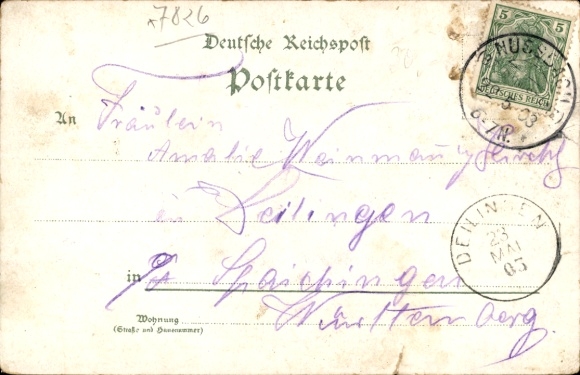 7826
Deutsche Reichspost
Postkarte
5 5
DEUTSCHES REICH
NUSS
03
6-7N.
An Fräulein
Amalie Weinmann
in Deilingen
DEILINGEN
23
MAI
03
in Spaichingen
Württemberg.
Wohnung
(Straße und Hausnummer)